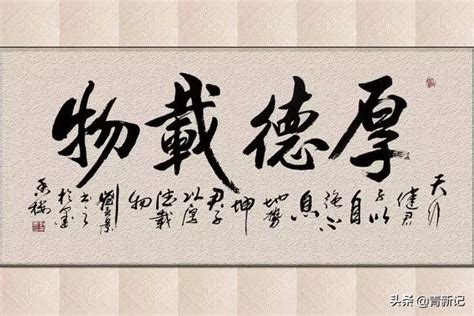 厚德載物
天行
健君
子以
自
强不
息
地勢
坤
君子
以厚
德載
物
头条 @菁新记